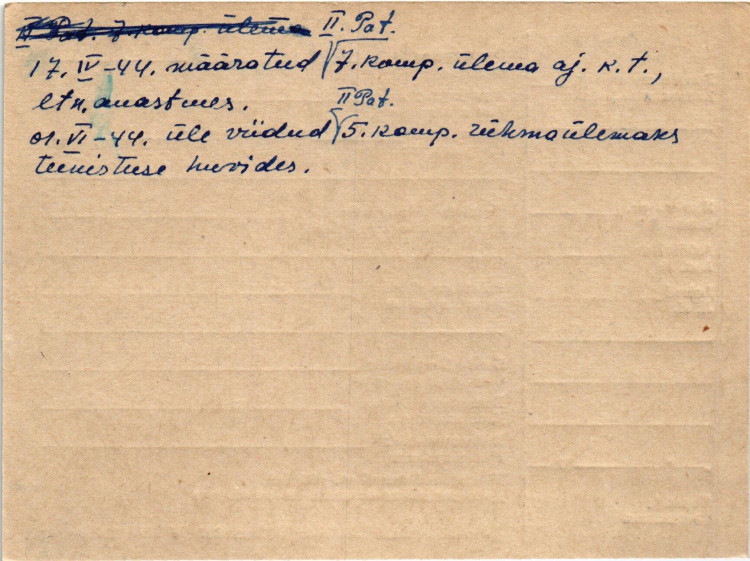 II Pat. 7. komp. ülema II. Pat.
17. IV-44. määratud 7. komp. ülema aj. k. t.,
ltn. auastmes. II Pat.
01. VI-44. üle viidud 5. komp. rühmaülemaks
teenistuse huvides.